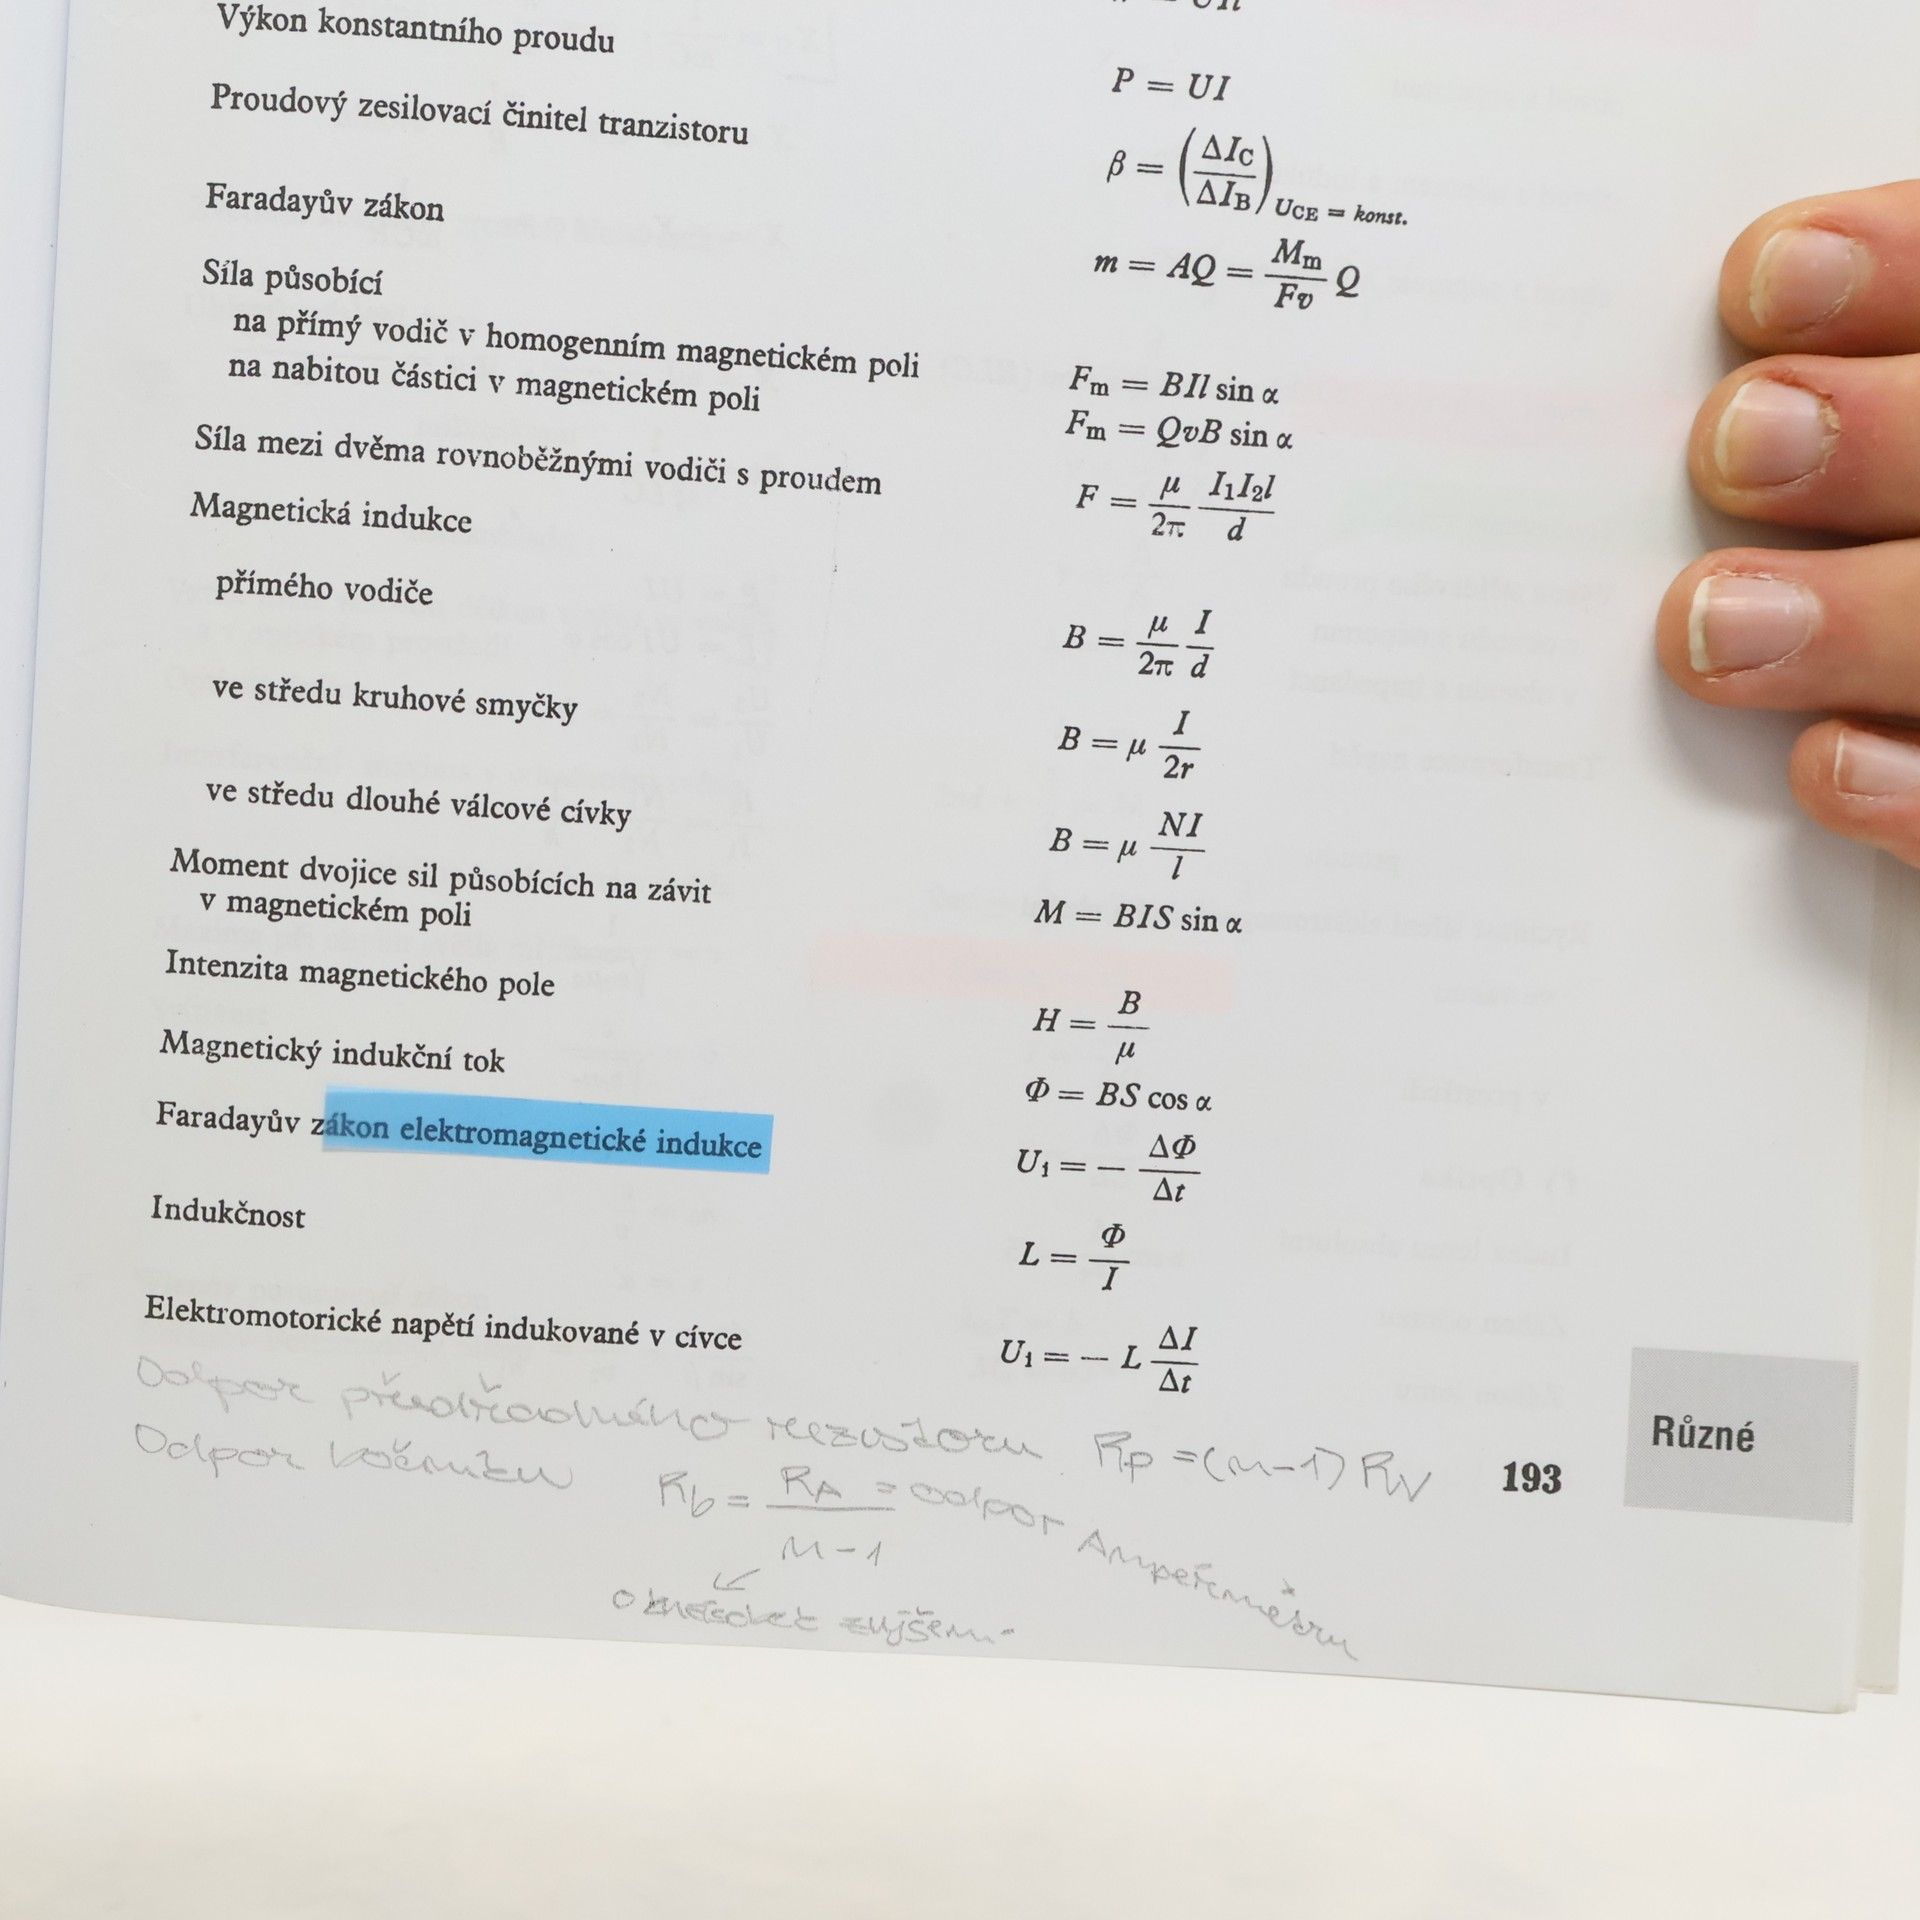 Výkon konstantního proudu
P = UI
Proudový zesilovací činitel tranzistoru
β = (ΔIC / ΔIB) UCE = konst.
Faradayův zákon
m = AQ = Mm / Fv Q
Síla působící
na přímý vodič v homogenním magnetickém poli
Fm = BIl sin α
na nabitou částici v magnetickém poli
Fm = QvB sin α
Síla mezi dvěma rovnoběžnými vodiči s proudem
F = μ / 2π I1I2l / d
Magnetická indukce
přímého vodiče
B = μ / 2π I / d
ve středu kruhové smyčky
B = μ I / 2r
ve středu dlouhé válcové cívky
B = μ NI / l
Moment dvojice sil působících na závit
v magnetickém poli
M = BIS sin α
Intenzita magnetického pole
H = B / μ
Magnetický indukční tok
Φ = BS cos α
Faradayův zákon elektromagnetické indukce
Ui = − ΔΦ / Δt
Indukčnost
L = Φ / I
Elektromotorické napětí indukované v cívce
Ui = − L ΔI / Δt
Odpor předřadného rezistoru Rp = (n-1) RV
Odpor bočníku Rb = RA / n-1 = odpor Ampérmetru
zvýšení
Různé
193